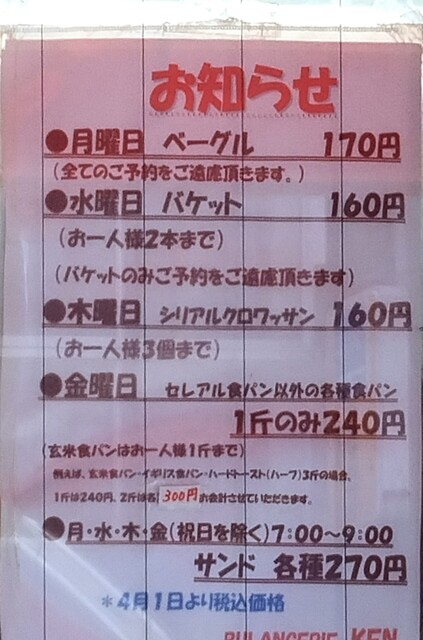 お知らせ
●月曜日 ベーグル 170円
(全てのご予約をご遠慮頂きます。)
●水曜日 バケット 160円
(お一人様2本まで)
(バケットのみご予約をご遠慮頂きます)
●木曜日 シリアルクロワッサン 160円
(お一人様3個まで)
●金曜日 セレアル食パン以外の各種食パン
1斤のみ240円
(玄米食パンはお一人様1斤まで)
例えば、玄米食パン・イギリス食パン・ハードトースト(ハーフ)3斤の場合、
1斤は240円、2斤は各300円お会計させていただきます。
●月・水・木・金(祝日を除く)7:00～9:00
サンド 各種270円
*4月1日より税込価格
BULANGERIE KEN